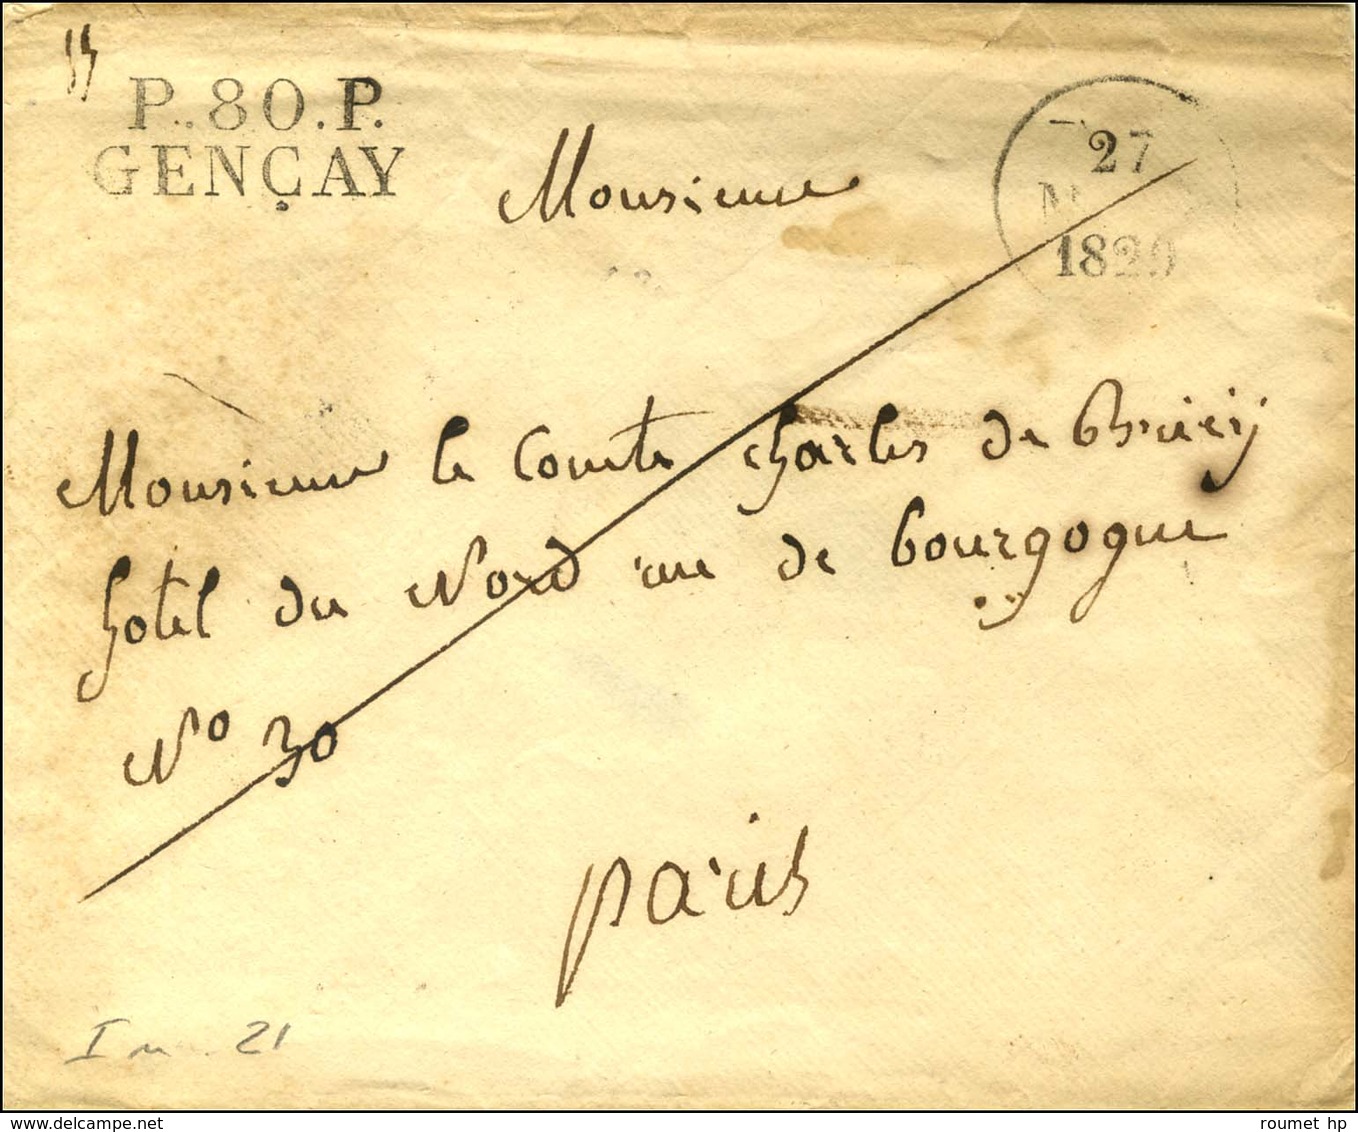 P.80.P.
GENÇAY
27
1829
Monsieur
Monsieur le Comte charles de
hotel du Nord rue de bourgogne
No 30
paris
21
delcampe.net
roumet hp